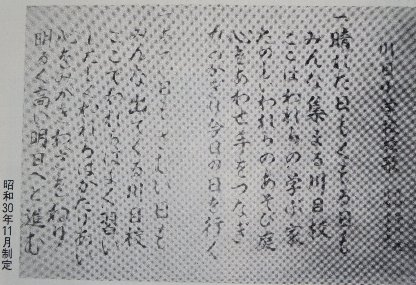 川目小学校校歌
一 晴れた日もくもる日も
みんな集まる川目校
ここはわれらの学ぶ家
たのしいわれらのあそび庭
心をあわせ手をつなぎ
今日の日を行く
日も
みんな出てくる川目校
ここでわれらはよく習い
したしくわれらはかたりあい
心をみがきわざをねり
明るく高い明日へと進む
昭和30年11月制定